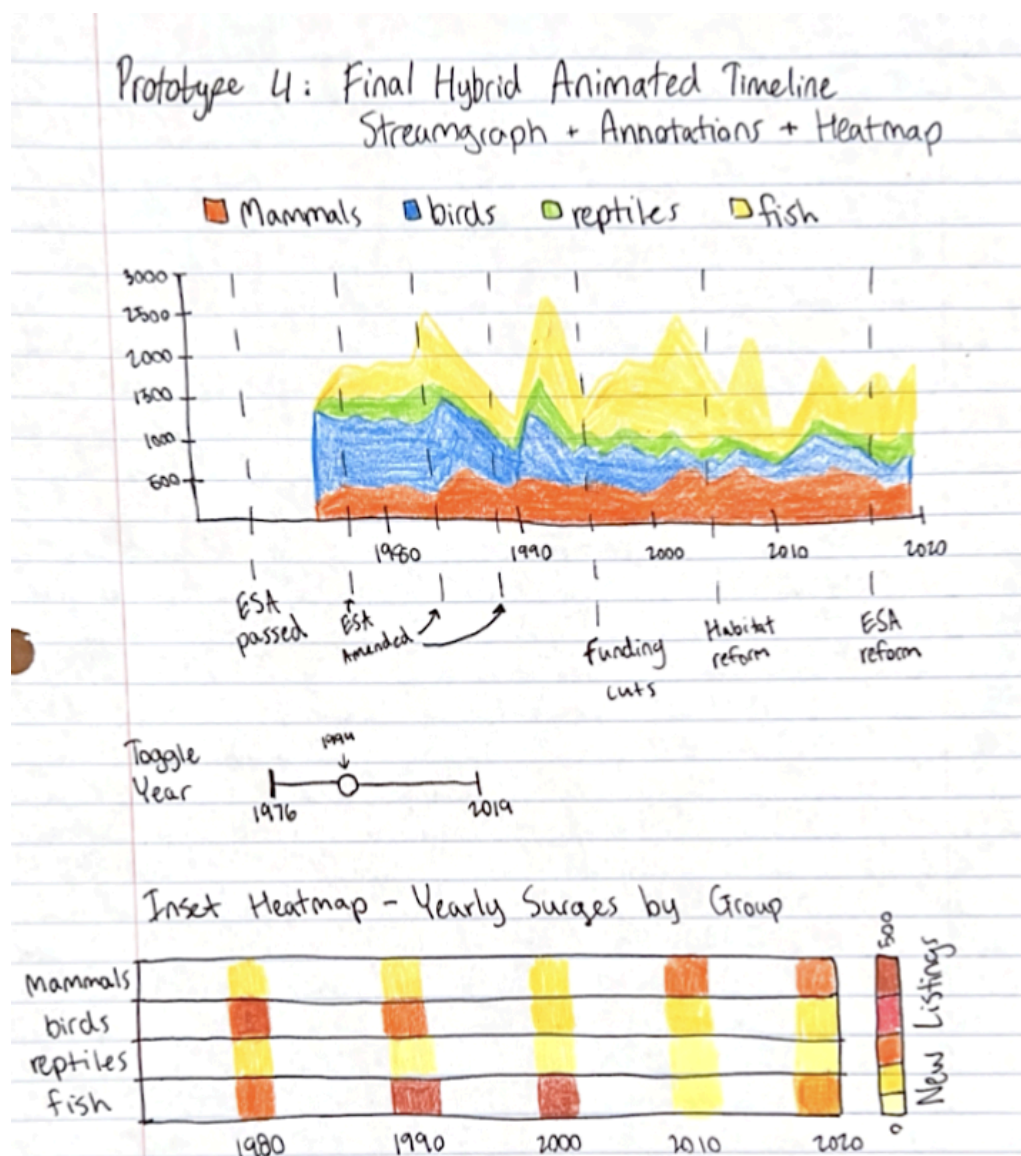 Prototype 4: Final Hybrid Animated Timeline
Streamgraph + Annotations + Heatmap
Mammals birds reptiles fish
3000
2500
2000
1500
1000
500
1980 1990 2000 2010 2020
ESA passed
ESA Amended
Funding cuts
Habitat reform
ESA reform
Toggle Year
1994
1976 2019
Inset Heatmap - Yearly Surges by Group
mammals
birds
reptiles
fish
1980 1990 2000 2010 2020
0 500
New Listings